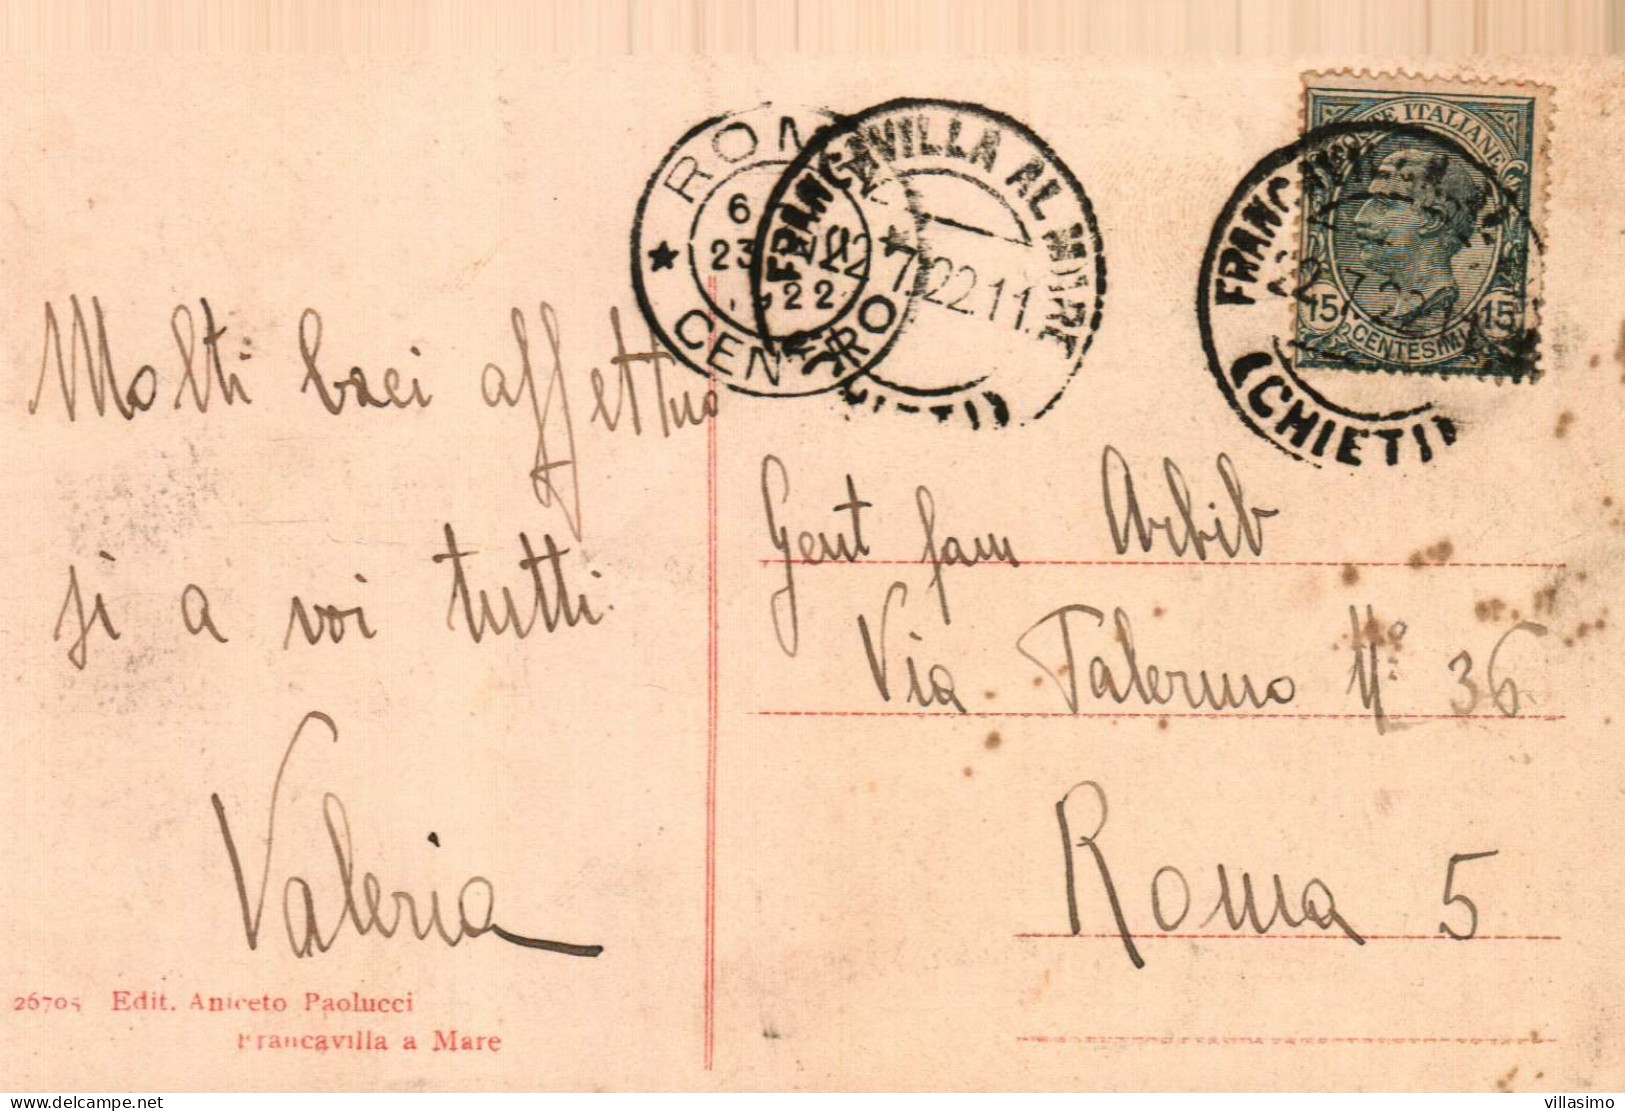 Molti baci affettuo
si a voi tutti.
Valeria
26705 Edit. Aniceto Paolucci
Francavilla a Mare
ROMA
6
23 VII
22
★ ★
CENTRO
FRANCAVILLA AL MARE
22.7.22.11
(CHIETI)
POSTE ITALIANE
15 CENTESIMI 15
FRANCAVILLA AL
22.7.22.11
(CHIETI)
Gent fam Arbib
Via Palermo Nº 36
Roma 5
delcampe.net
villasimo